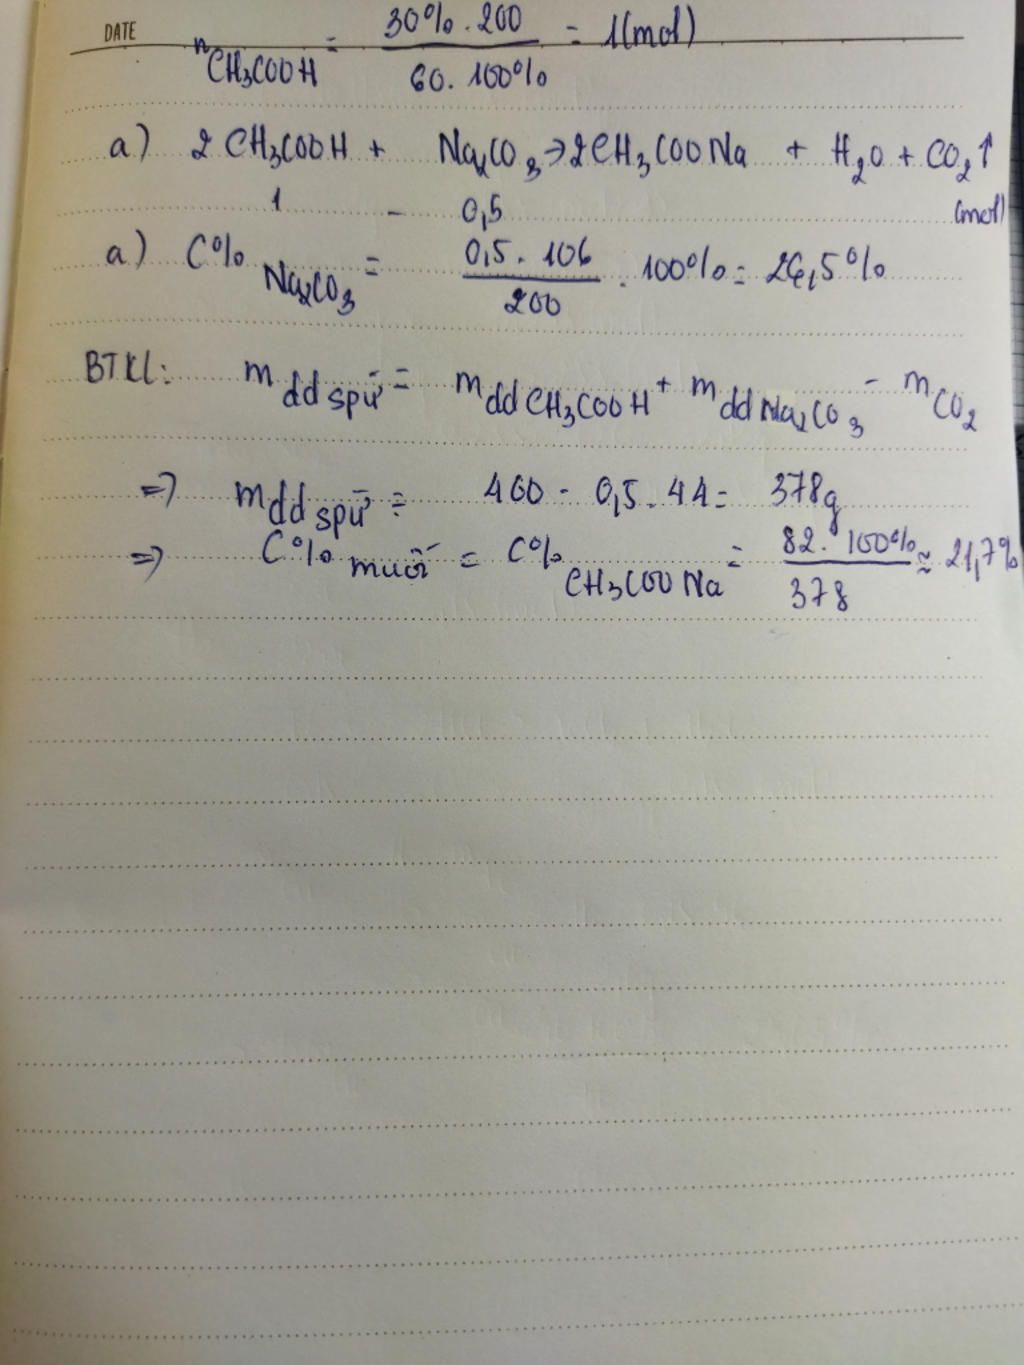 DATE
nCH₃COOH = 30%.200 / 60.100% = 1(mol)
a) 2CH₃COOH + Na₂CO₃ → 2CH₃COONa + H₂O + CO₂↑
1 - 0,5 (mol)
a) C% Na₂CO₃ = 0,5.106 / 200 . 100% = 26,5%
BTKL: m dd spứ = m dd CH₃COOH + m dd Na₂CO₃ - m CO₂
=> m dd spứ = 400 - 0,5.44 = 378g
=> C% muối = C% CH₃COONa = 82.100% / 378 ≈ 21,7%